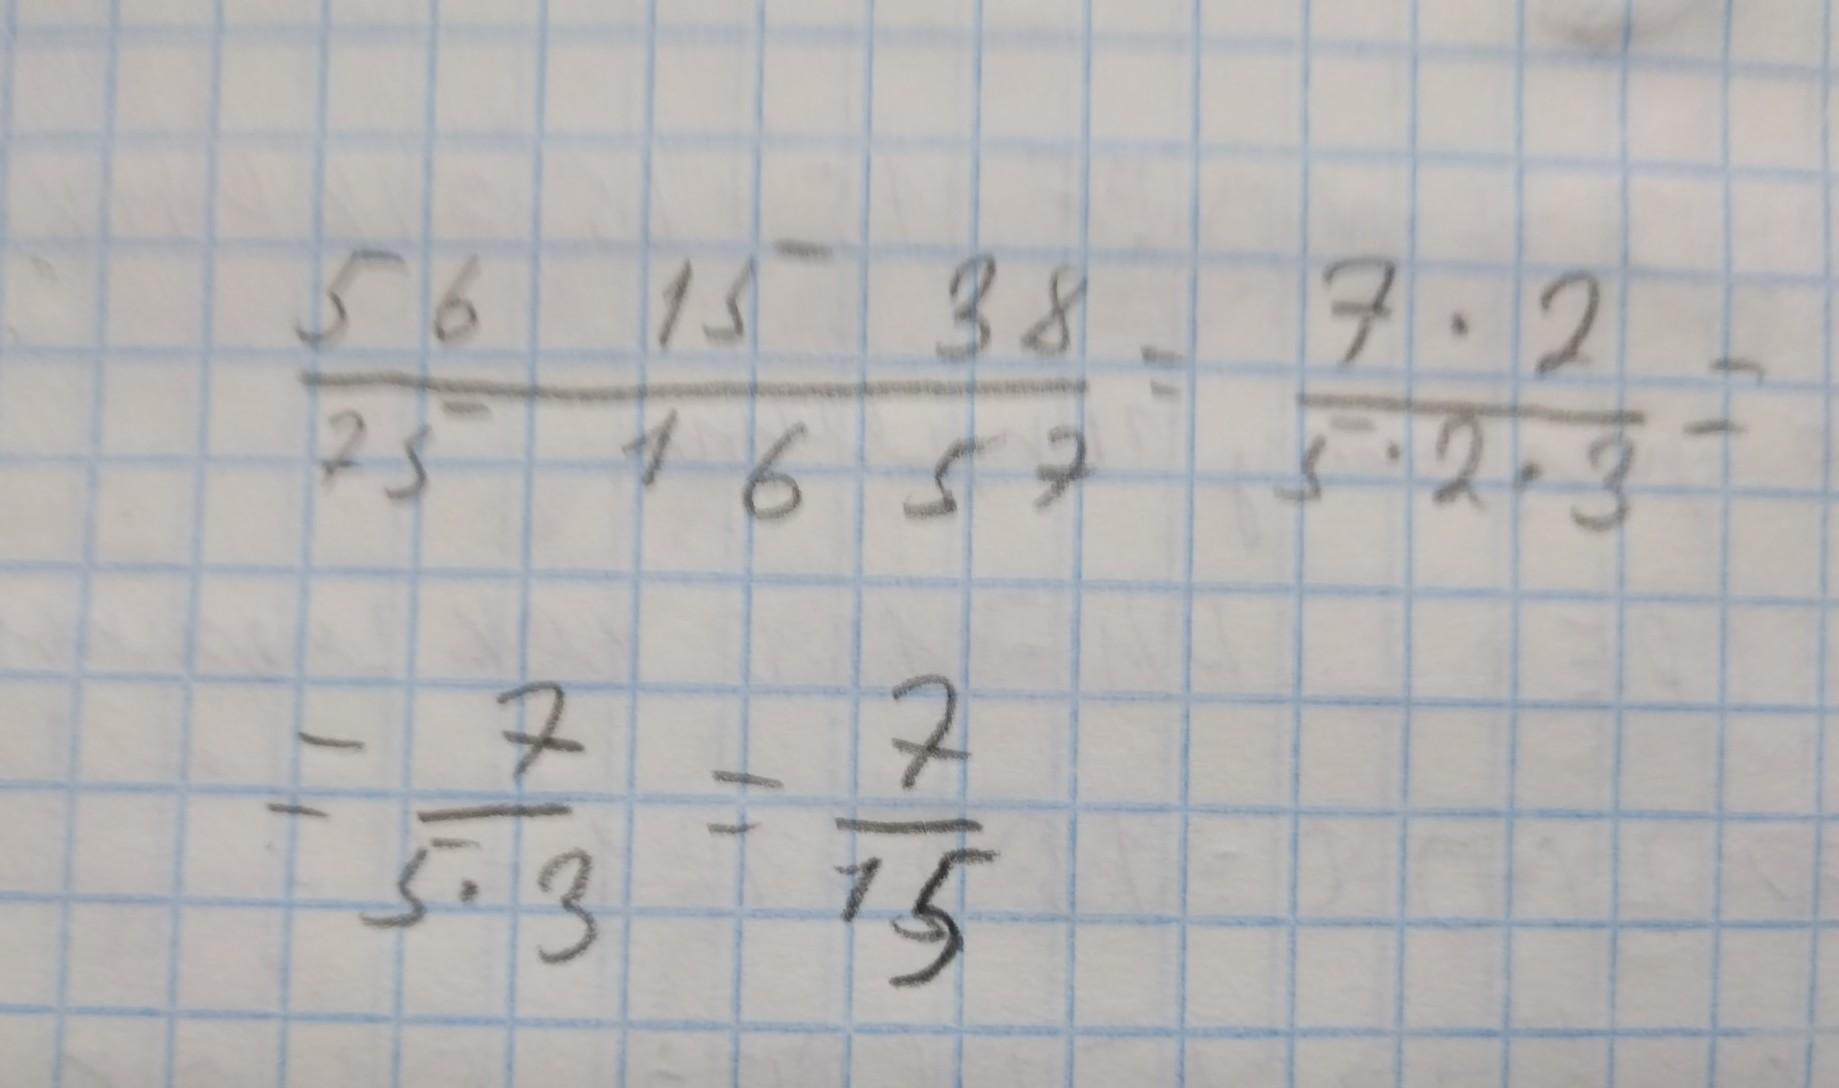 56 15 38 / 75 16 57 = 7 · 2 / 5 · 2 · 3 =
= 7 / 5 · 3 = 7 / 15